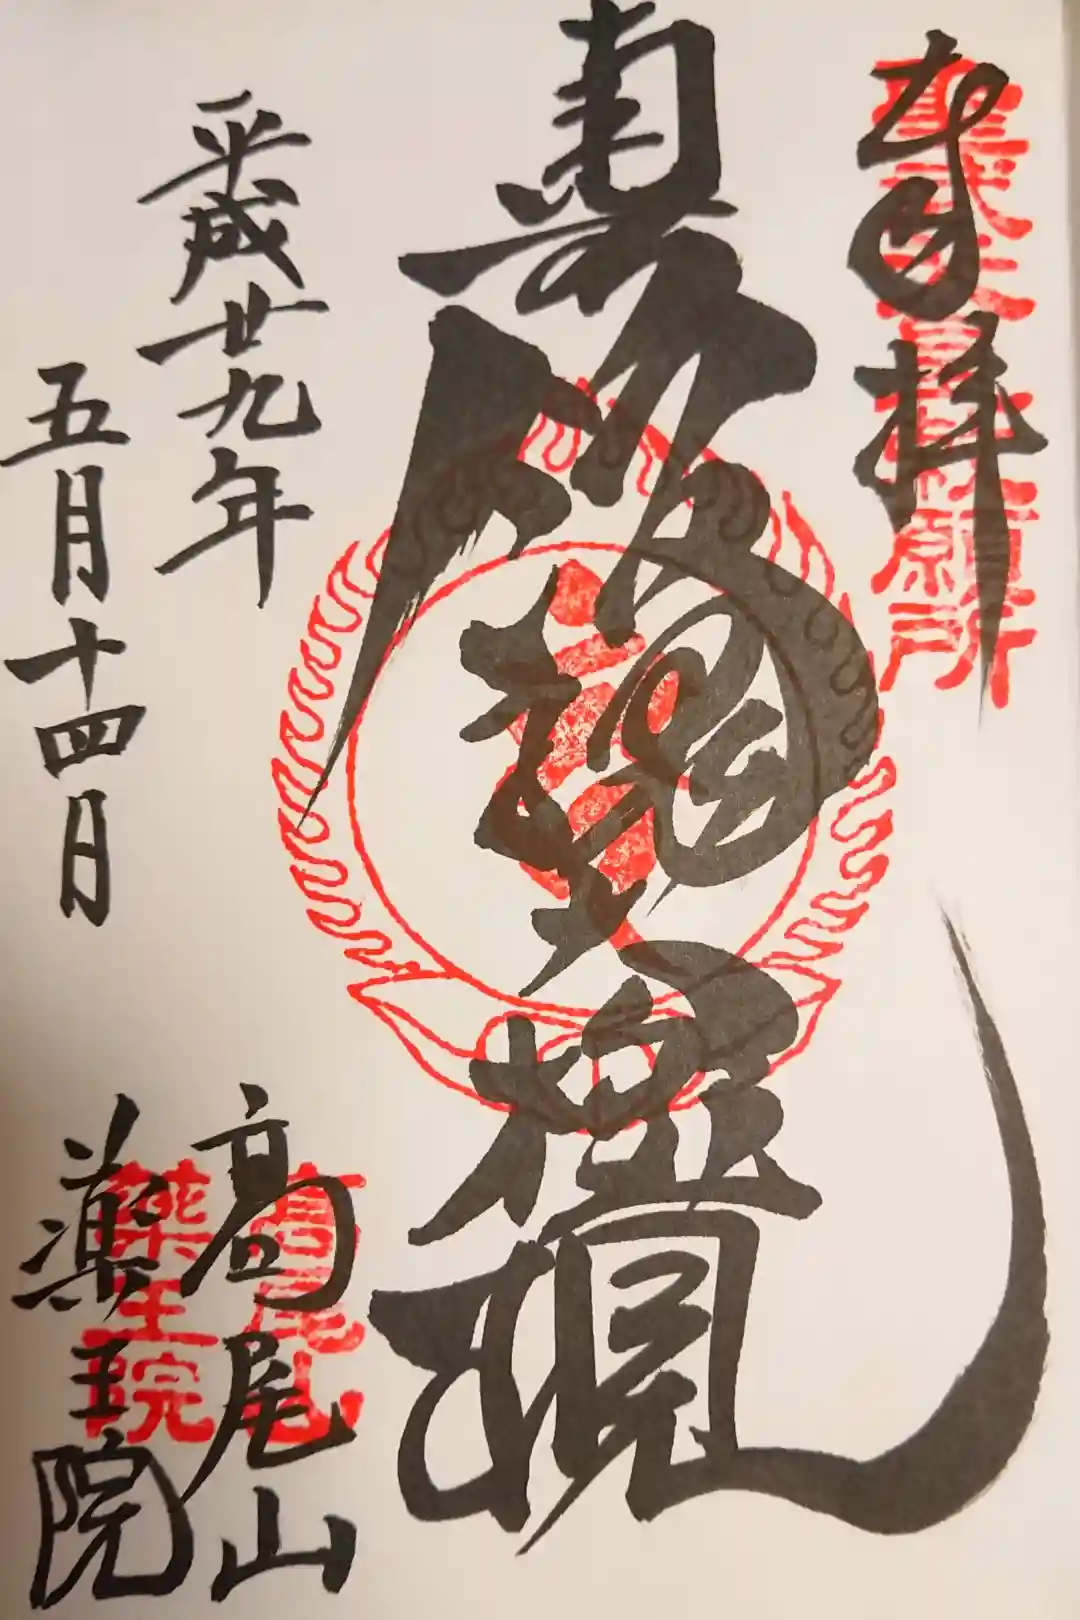 奉拝
聖武天皇勅願所
飯縄大権現
平成廿九年
五月十四日
高尾山
薬王院
高尾山
薬王院